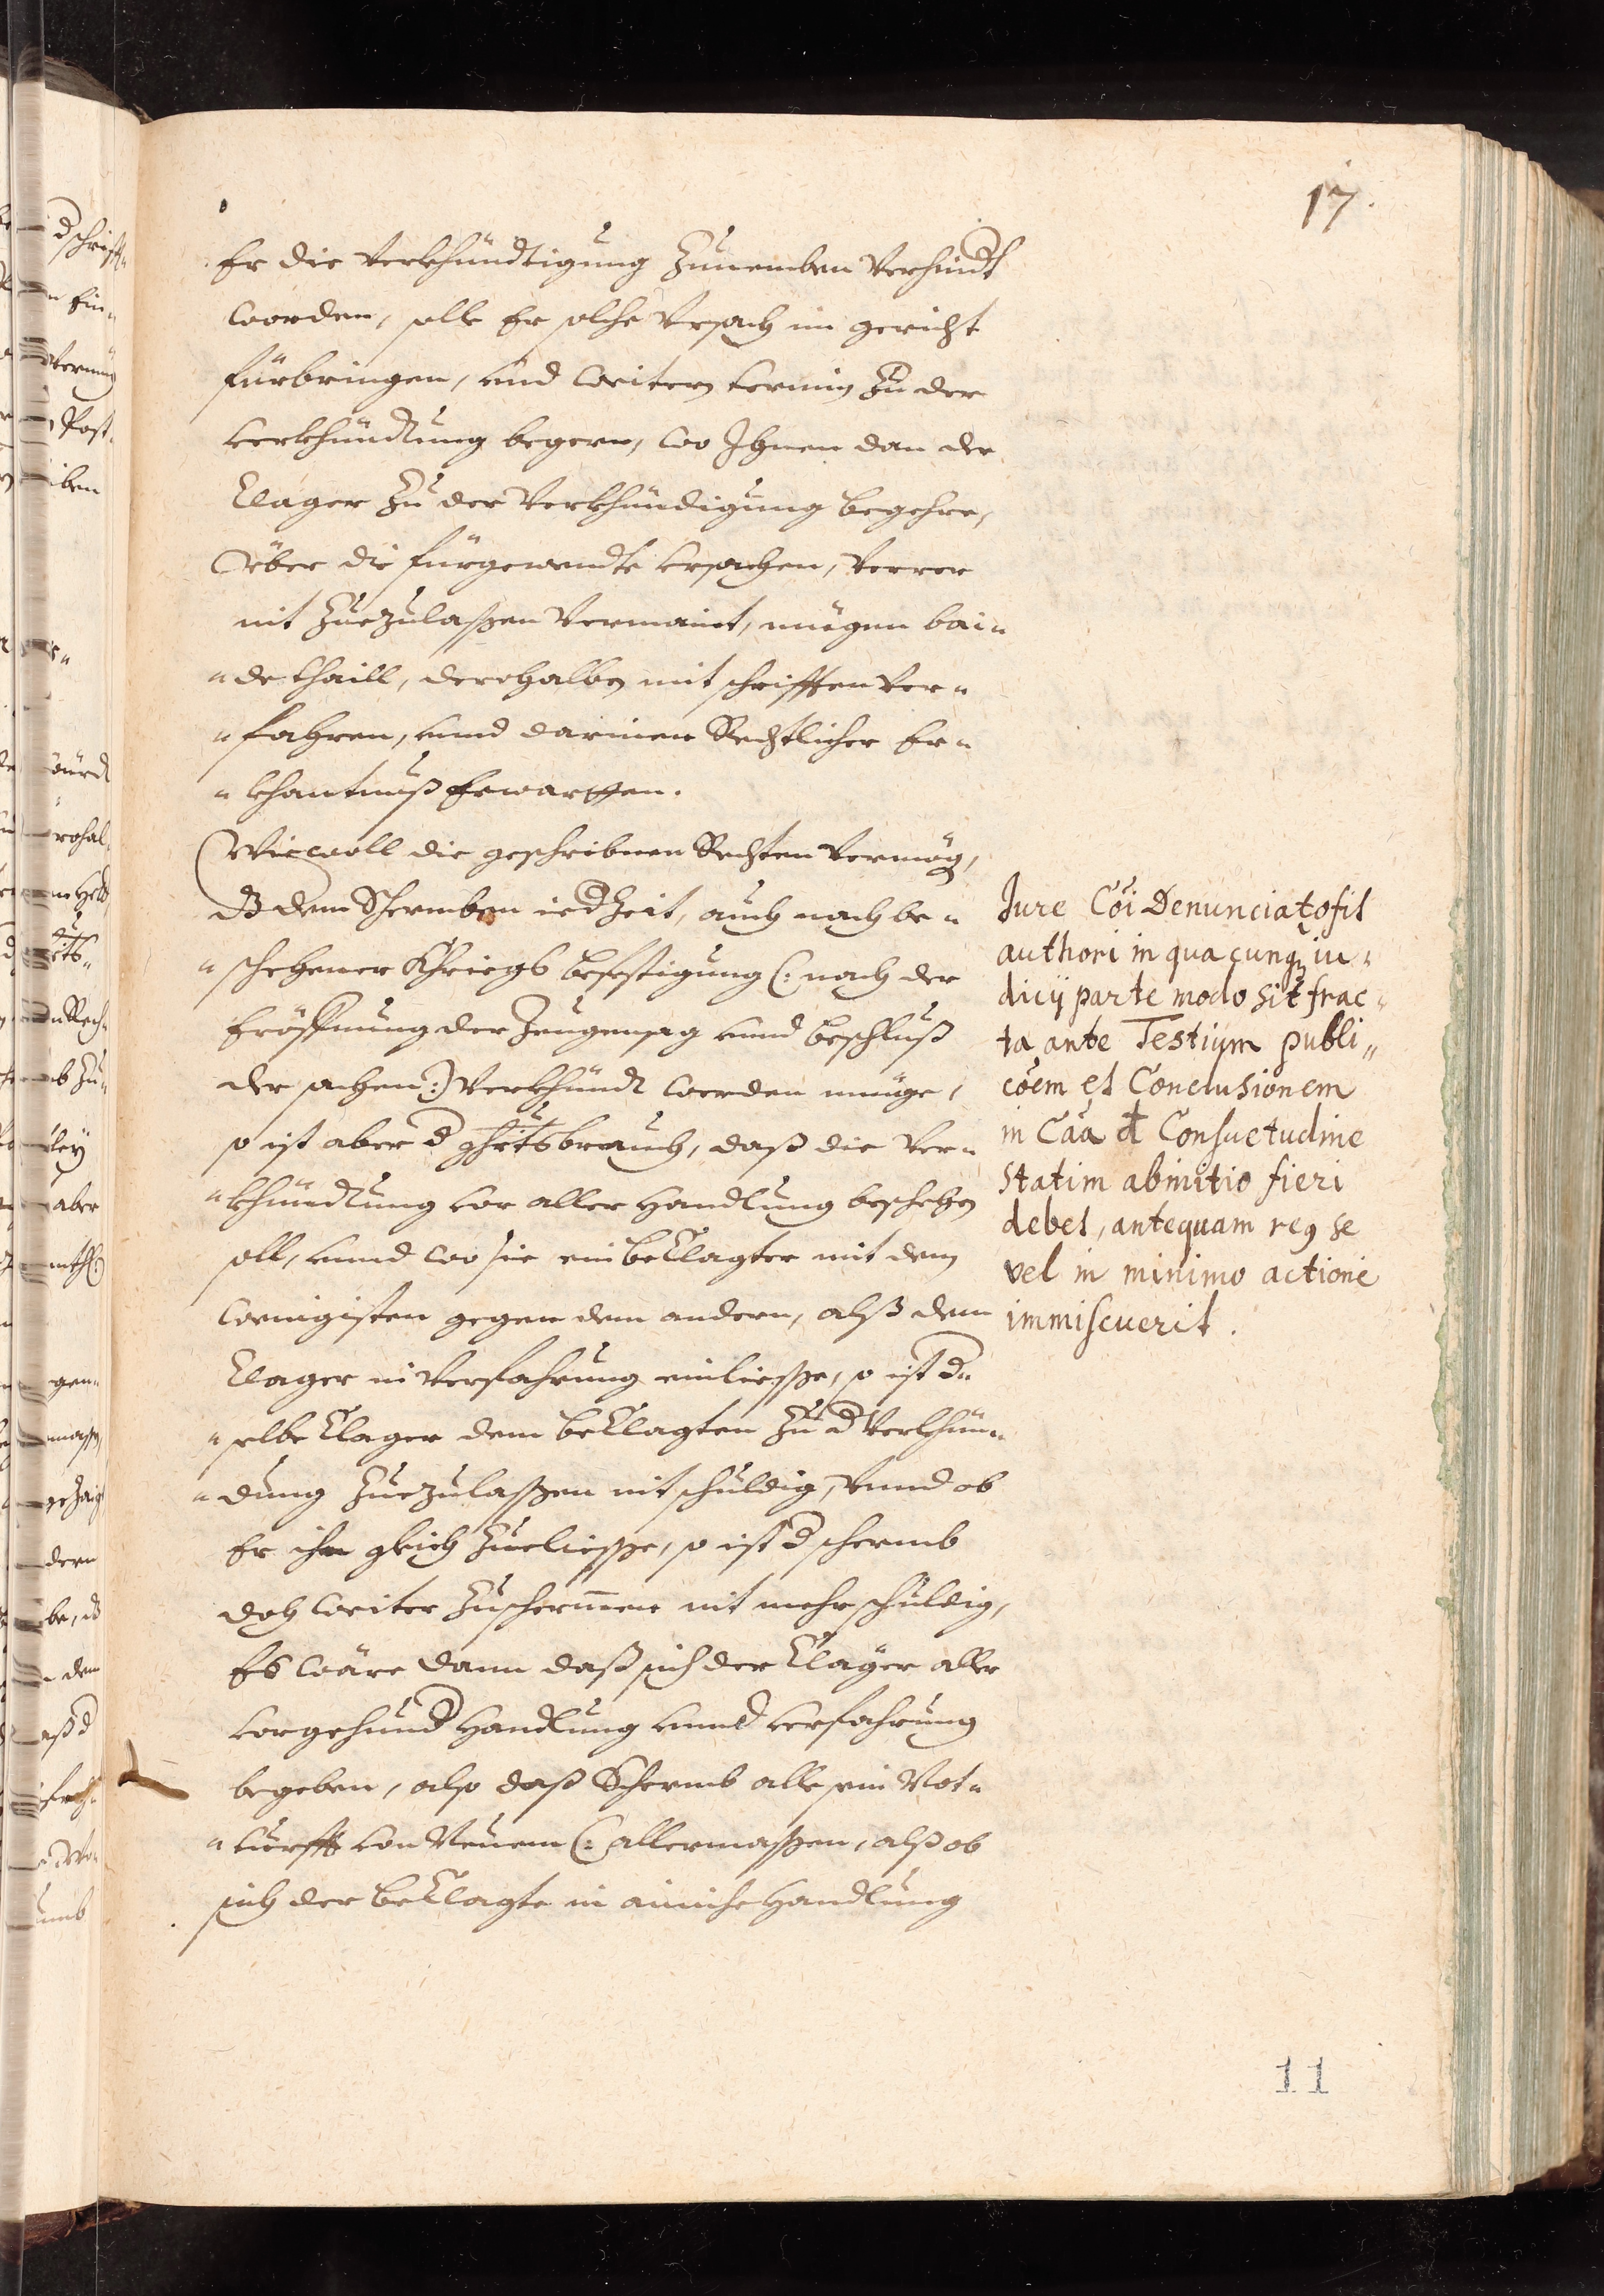 17.
Er die Verkhündtigung Zunemben Verhindt
worden, solle Er solche Vrsach im gericht
fürbringen, vnd weitern termin Zu der
verkhündung begern, wo Ihnen dan der
Clager Zu der Verkhündigung begehre,
Über die fürgewendte vrsachen, verrer
nit Zuezulaßen Vermaint, mügen bai„
„de thaill, derohalben mit schrifften Ver„
„fahren, vnnd darinen Rechtlicher Er„
„khantnuß Erwartten.
Wiewoll die geschribnen Rechten vermög,
dz dem Schermben iedZeit, auch nach be„
„schehener Khriegs befestigung (: nach der
Eröffnung der Zeugensag vnnd beschluß
der sachen :) Verkhündt werden müge,
so ist aber d ghrtsbrauch, daß die Ver„
„khündung vor aller Handlung beschehen
soll, vnnd wo sie ein beClagter mit dem
wenigisten gegen dem andern, alß dem
Clager in Verfahrung einliesße, so ist d„
„selbe Clager dem beClagten Zu d Verkhün„
„dung Zuezulaßen nit schuldig, Vnnd ob
Er ihn gleich Zueliesße, so ist d schermb
doch weiter Zuschermen nit mehr schuldig,
Es wäre dann daß sich der Clager aller
vorgehund Handlung vnnd verfahrung
begeben, also daß Schermb alle sein Not„
„turfft von Neuem (: allermaßen, alß ob
sich der beClagte in ainiche Handlung
Jure Cōi Denunciatо fit
authori in quacunqꝫ iu„
dicij parte modo sit frac„
ta ante Testium publi„
cōem et Conclusionem
in Caã đ Consuetudine
statim abinitio fieri
debet, antequam reꝯ se
vel in minimo actione
immiscuerit.
11